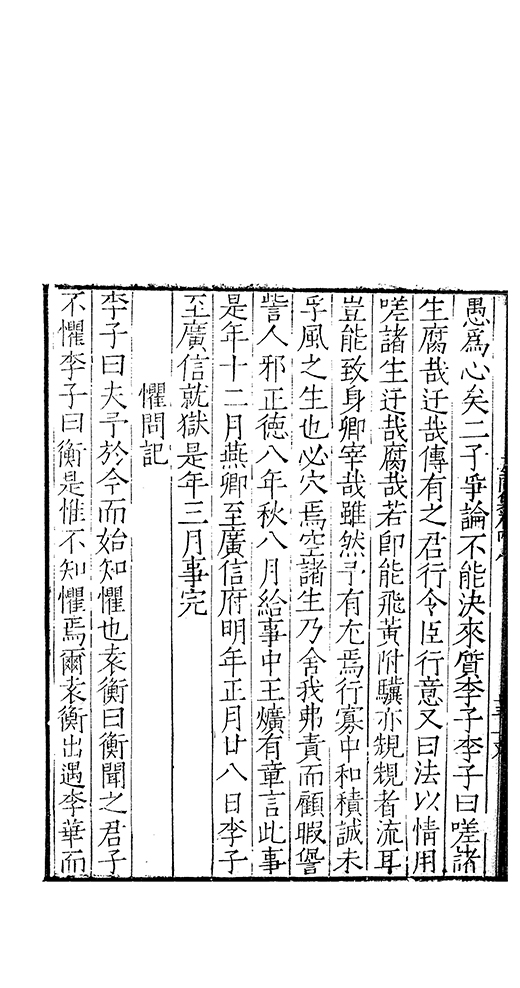 愚爲心矣二子爭論不能決來質李子李子曰嗟諸
生腐哉迂哉傳有之君行令臣行意又曰法以情用
嗟諸生迂哉腐哉若即能飛黃附驥亦䂓䂓者流耳
豈能致身卿宰哉雖然予有尤焉行寡中和積誠未
孚風之生也必穴焉空諸生乃舍我弗責而顧暇訾
訾人邪正德八年秋八月給事中王爌有章言此事
是年十二月燕卿至廣信府明年正月廿八日李子
至廣信就獄是年三月事完
懼問記
李子曰夫予於今而始知懼也袁衡曰衡聞之君子
不懼李子曰衡是惟不知懼焉爾袁衡出遇李華而